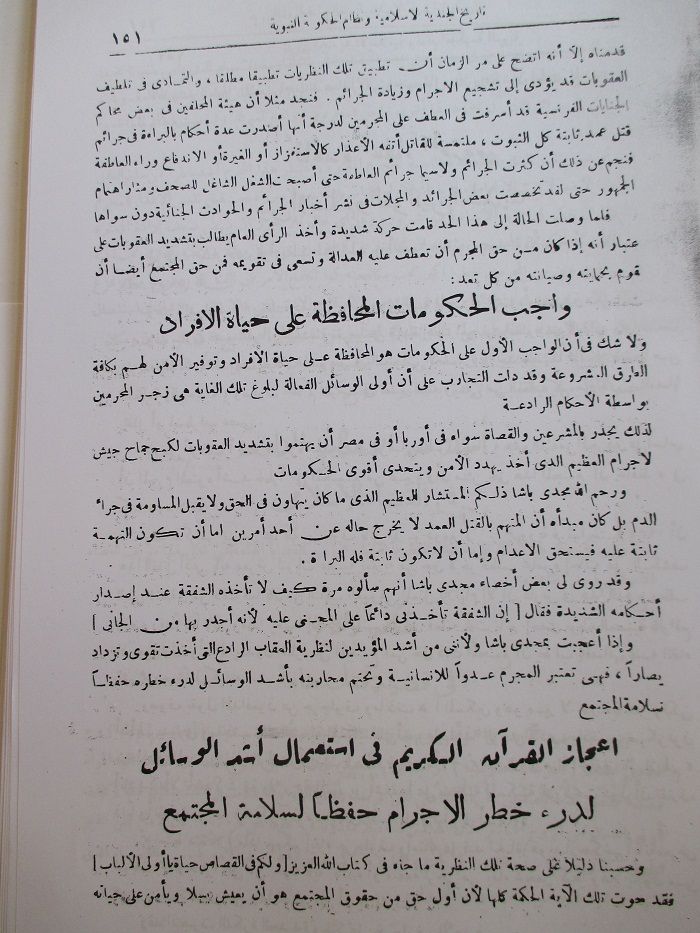 تاريخ الجندية الاسلامية ونظام الحكومة النبوية
١٥١
قدمناه إلا أنه اتضح على مر الزمان أن تطبيق تلك النظريات تطبيقا مطلقا ، والتمادى فى تلطيف
العقوبات قد يؤدى إلى تشجيع الاجرام وزيادة الجرائم . فنجد مثلا أن هيئة المحلفين فى بعض محاكم
الجنايات الفرنسية قد أسرفت فى العطف على المجرمين لدرجة أنها أصدرت عدة أحكام بالبراءة فى جرائم
قتل عمد ثابتة كل الثبوت ، ملتمسة للقاتل أتفه الأعذار كالاستفزاز أو الغيرة أو الاندفاع وراء العاطفة
فنجم عن ذلك أن كثرت الجرائم ولاسيما جرائم العاطفة حتى أصبحت الشغل الشاغل للصحف ومثار اهتمام
الجمهور حتى لقد تخصصت بعض الجرائد والمجلات فى نشر أخبار الجرائم والحوادث الجنائية دون سواها
فلما وصلت الحالة إلى هذا الحد قامت حركة شديدة وأخذ الرأى العام يطالب بتشديد العقوبات على
عتبار أنه إذا كان من حق المجرم أن تعطف عليه العدالة وتسعى فى تقويمه فمن حق المجتمع أيضا أن
قوم بحمايته وصيانته من كل تعد :
واجب الحكومات المحافظة على حياة الافراد
ولا شك فى أن الواجب الأول على الحكومات هو المحافظة على حياة الأفراد وتوفير الأمن لهم بكافة
الطرق المشروعة وقد دلت التجارب على أن أولى الوسائل الفعالة لبلوغ تلك الغاية هى زجر المجرمين
بواسطة الأحكام الرادعة
لذلك يجدر بالمشرعين والقضاة سواء فى أوربا أو فى مصر أن يهتموا بتشديد العقوبات لكبح جماح جيش
لاجرام العظيم الذى أخذ يهدد الأمن ويتحدى أقوى الحكومات
ورحم الله مجدى باشا ذلكم المستشار العظيم الذى ما كان يتهاون فى الحق ولا يقبل المساومة فى جرائم
الدم بل كان مبدأه أن المتهم بالقتل العمد لا يخرج حاله عن أحد أمرين اما أن تكون التهمة
ثابتة عليه فيستحق الاعدام وإما أن لا تكون ثابتة فله البراءة .
وقد روى لى بعض أخصاء مجدى باشا أنهم سألوه مرة كيف لا تأخذه الشفقة عند إصدار
أحكامه الشديدة فقال [ إن الشفقة تأخذنى دائماً على المجنى عليه لأنه أجدر بها من الجانى ]
وإذا أعجبت بمجدى باشا ولأننى من أشد المؤيدين لنظرية العقاب الرادع التى أخذت تقوى وتزداد
نصاراً ، فهى تعتبر المجرم عدواً للانسانية وتحتم محاربته بأشد الوسائل لدرء خطره حفظاً
لسلامة المجتمع
اعجاز القرآن الكريم فى استعمال أشد الوسائل
لدرء خطر الاجرام حفظاً لسلامة المجتمع
وحسبنا دليلا على صحة تلك النظرية ما جاء فى كتاب الله العزيز [ ولكم فى القصاص حياة يا أولى الألباب ]
فقد حوت تلك الآية الحكمة كلها لأن أول حق من حقوق المجتمع هو أن يعيش بسلام ويأمن على حياته